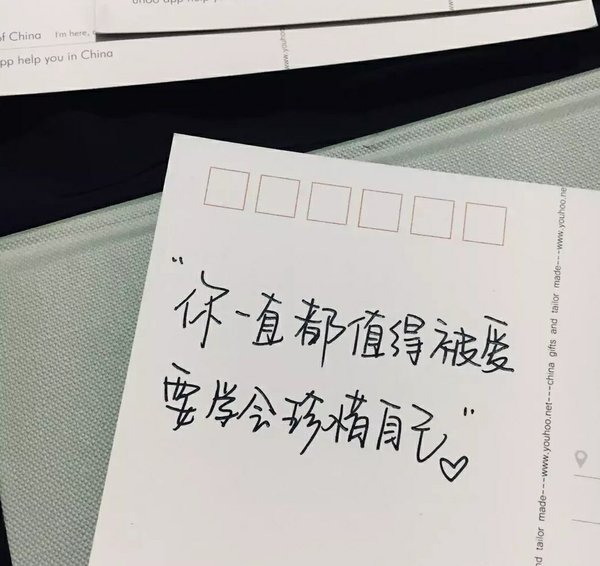 of China I'm here,
pp help you in China
app help you
www.youhoo
"你一直都值得被爱
要学会珍惜自己"♡
www.youhoo.net---china gifts and tailor made---www.youhoo.net